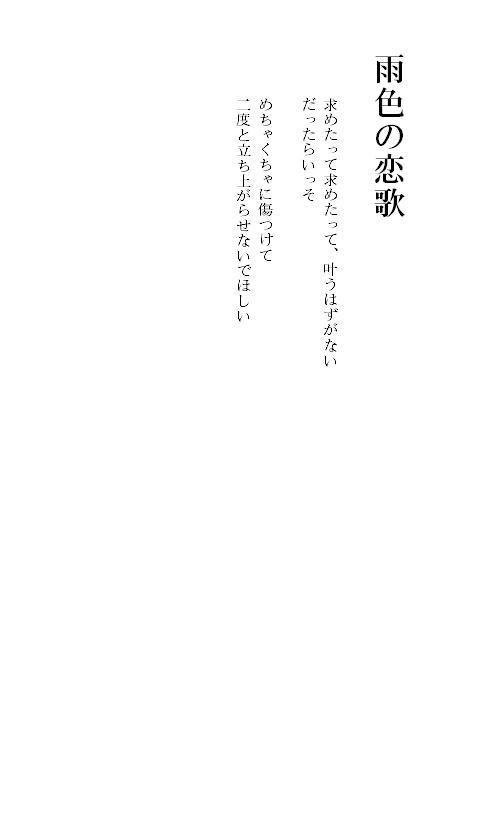 雨色の恋歌
求めたって求めたって、叶うはずがない
だったらいっそ
めちゃくちゃに傷つけて
二度と立ち上がらせないでほしい